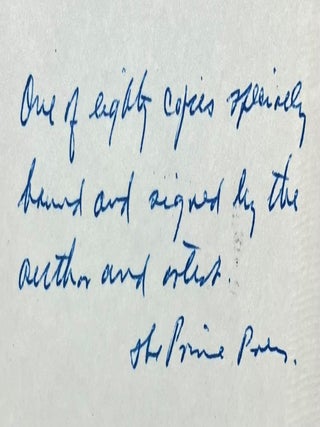 One of eighty copies specially
bound and signed by the
author and artist.
The Prine Press.